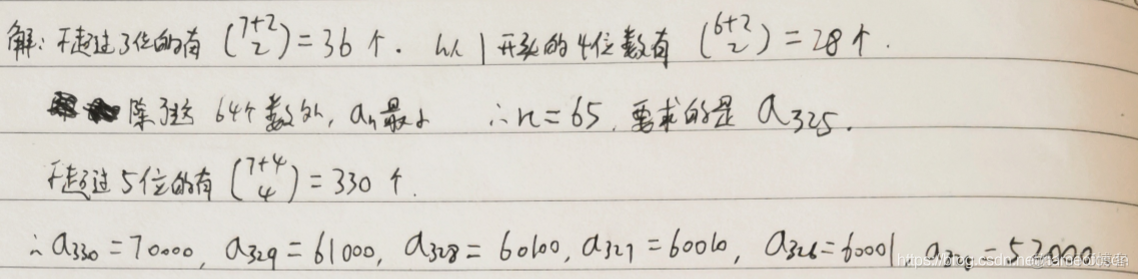 解: 不超过3位的有 (7+2 2) = 36 个. 以 1 开头的4位数有 (6+2 2) = 28 个.
除了这 64个数外, aₙ最小 ∴ n = 65, 要求的是 a₃₂₅.
不超过5位的有 (7+4 4) = 330 个.
∴ a₃₃₀ = 70000, a₃₂₉ = 61000, a₃₂₈ = 60100, a₃₂₇ = 60010, a₃₂₆ = 60001, a₃₂₅ = 52000